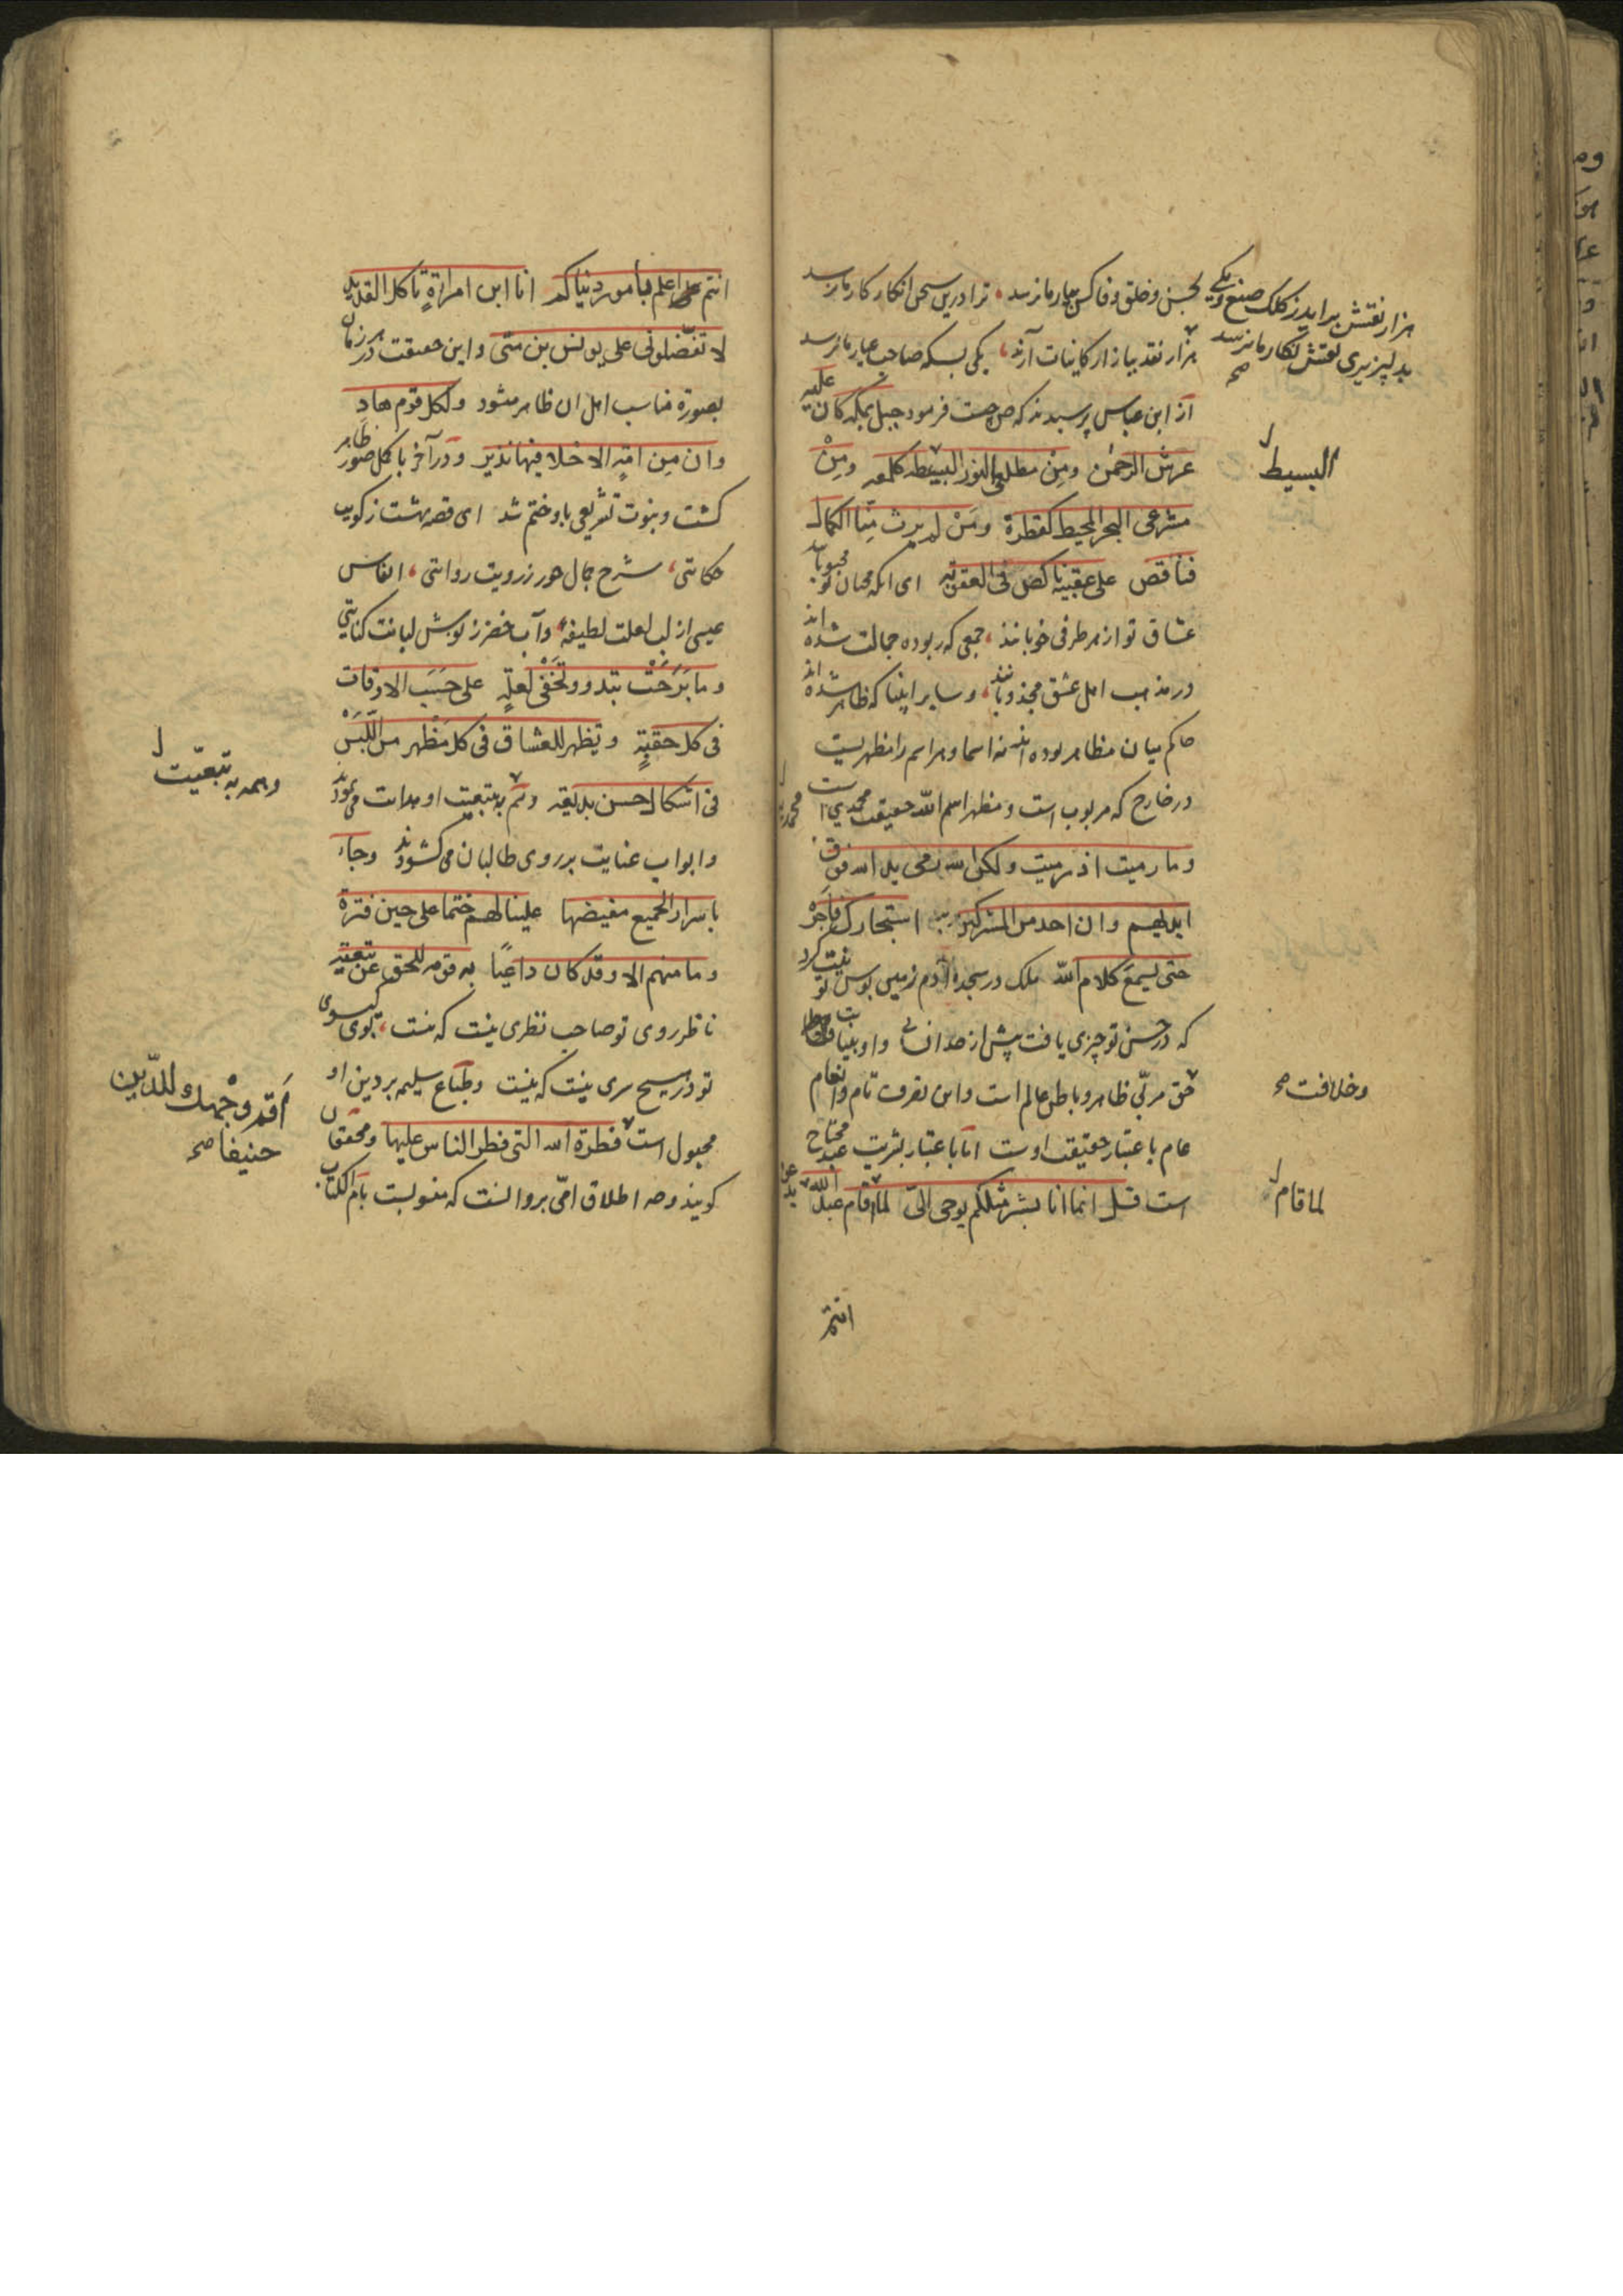 بحسن و خلق و وفا کس بیار ما نرسد ، ترا درین سخن انکار کار ما نرسد
هزار نقد ببازار کاینات آرند ، یکی بسکه صاحب عیار ما نرسد
از ابن عباس پرسیدند که ص چیست فرمود جبل بمکه کان علیه
عرش الرحمن ومِنْ مطلعی النور البسیطه کلمعه ومِنْ
مشرعی البحر المحیط کقطرة ومَنْ لم یرث مِنّا الکمال
فناقص علی عقبیه ناکص فی العقوبه ای انکه محبان تو محبوبانند
عشاق تو از هر طرفی خوبانند ، جمعی که ربوده جمالت شده اند
در مذهب اهل عشق مجذوبانند ، و سایر اینها که ظاهر شده اند
حاکم میان مظاهر بوده اند نه اسما و هر اسم را مظهریست
در خارج که مربوب است و مظهر اسم الله حقیقت محمدی است
وما رمیت اذ رمیت ولکن الله رمی ید الله فوق
ایدیهم وان احد من المشرکین استجارک فاجره
حتی یسمع کلام الله ملک در سجده آدم زمین بوس تو نیت کرد
که در حسن تو چیزی یافت پیش از حد انسانی و او بنیابت
حق مربّی ظاهر و باطن عالم است و این تصرف تام و انعام
عام باعتبار حقیقت اوست اما باعتبار بشریت عبد محتاج
است قل انما انا بشر مثلکم یوحی الیّ لما قام عبد الله
انتم
هزار نقش برآید ز کلک صنع و یکی
بدلپذیری نقش نکار ما نرسد
صح
البسیط
وخلافت صح
لما قام
انتم اعلم بامور دنیاکم انا ابن امراةٍ تاکل القدید
لا تفضلونی علی یونس بن متی و این حقیقت در هر زمان
بصورة مناسب اهل ان ظاهر میشود ولکل قوم هادٍ
وان مِن امّةٍ الا خلا فیها نذیر و در آخر باکمل صور ظاهر
کشت و نبوت تشریعی باو ختم شد ای قصه بهشت ز کویت
حکایتی ، شرح جمال حور ز رویت روایتی ، انفاس
عیسی از لب لعلت لطیفه ، و آب خضر ز نوش لبانت کنایتی
وما بَرَحَتْ تبدو وتَخْفی لعلةٍ علی حَسَب الاوقات
فی کل حقبةٍ وتظهر للعشاق فی کل مَظْهر من اللَّبس
فی اشکال حسن بدیعة و هم به تبعیت او هدایت می نمودند
و ابواب عنایت بر روی طالبان می کشودند وجاء
باسرار الجمیع مفیضها علینا لهم ختما علی حین فترة
وما منهم الا وقد کان داعیًا به قومه للحق عن تبعیة
ناظر روی تو صاحب نظری نیست که نیست ، بوی کیسوی
تو در هیچ سری نیست که نیست و طباع سلیمه بر دین او
مجبول است فطرة الله التی فطر الناس علیها و محققان
کویند وجه اطلاق امّی برو انست که منسوبست بام الکتاب
وهمه به تبعیّت
أَقم وجْهك للدّین
حنیفا صح